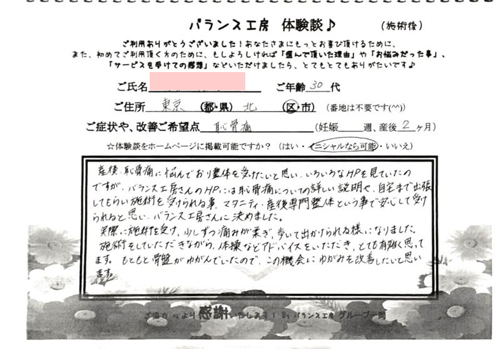 バランス工房 体験談♪ (施術後)
ご利用ありがとうございました!あなたさまにもっとお喜び頂けるために、
また、初めてご利用頂く方のために、もしよろしければ「選んで頂いた理由」や「お悩みだった事」、
「サービスを受けての感想」などいただけましたら、とてもとてもありがたいです♪
ご氏名 ご年齢 30 代
ご住所 東京 (都・県) 北 (区・市) (番地は不要です(^^))
ご症状や、改善ご希望点 恥骨痛 (妊娠 週、産後 2 ヶ月)
☆体験談をホームページに掲載可能ですか? (はい・イニシャルなら可能・いいえ)
産後、恥骨痛に悩んでおり整体を受けたいと思い、いろいろなHPを見ていたの
ですが、バランス工房さんのHPには恥骨痛についての詳しい説明や、自宅まで出張
してもらい施術を受けられる事、マタニティ・産後専門整体という事で安心して受け
られると思い、バランス工房さんに決めました。
実際に施術を受け、少しずつ痛みが楽になり、歩いて出かけられる様になりました。
施術をしていただきながら、体操などアドバイスをいただき、とても有難く思って
ます。もともと骨盤がゆがんでいたので、この機会にゆがみも改善したいと思い
ます。
ご協力 心より 感謝 いたします! By バランス工房グループ一同